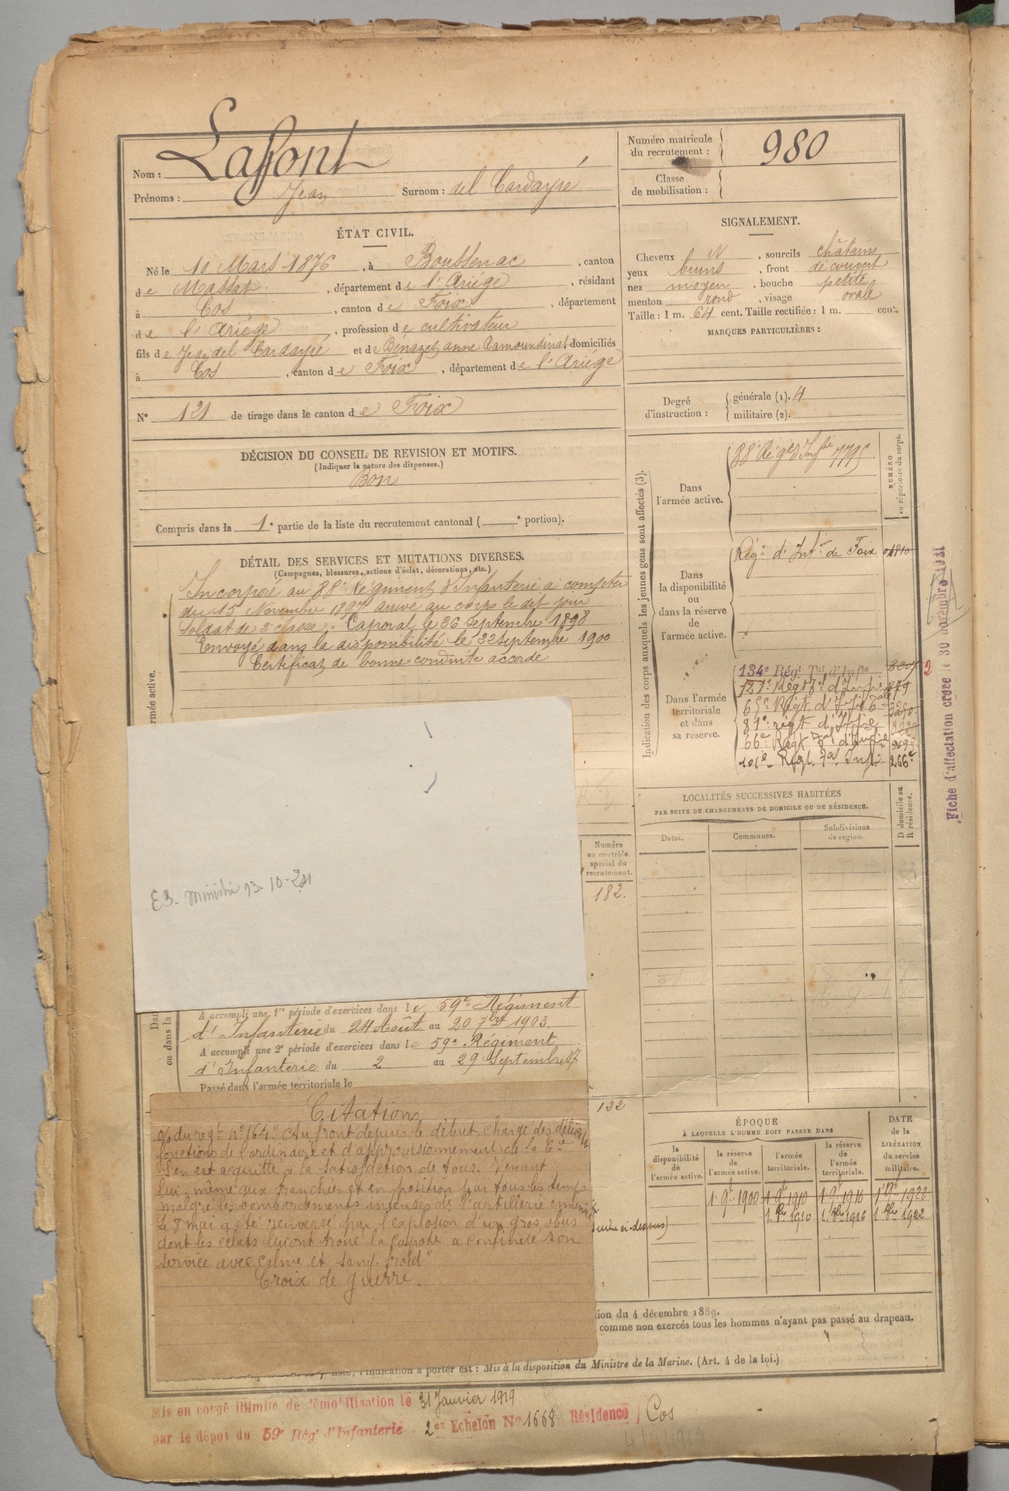 Nom : Laffont
Prénoms : Jean Surnom : del Cardayré
Numéro matricule du recrutement : 980
Classe de mobilisation :
ÉTAT CIVIL.
Né le 10 Mars 1876, à Boussenac, canton
de Massat, département de l'Ariége, résidant
à Cos, canton de Foix, département
de l'Ariége, profession de cultivateur
fils de Jean del Cardayré et de Bénazet anne Ramoundinat domiciliés
à Cos, canton de Foix, département de l'Ariége
N° 121 de tirage dans le canton de Foix
SIGNALEMENT.
Cheveux N, sourcils châtains
yeux bruns, front découvert
nez moyen, bouche petite
menton rond, visage ovale
Taille : 1 m. 64 cent. Taille rectifiée : 1 m. cent.
MARQUES PARTICULIÈRES :
Degré d'instruction : générale (1). 4
militaire (2).
DÉCISION DU CONSEIL DE REVISION ET MOTIFS.
(Indiquer la nature des dispenses.)
Bon
Compris dans la 1e partie de la liste du recrutement cantonal ( e portion).
DÉTAIL DES SERVICES ET MUTATIONS DIVERSES.
(Campagnes, blessures, actions d'éclat, décorations, etc.)
Incorporé au 88e Régiment d'Infanterie à compter
du 15 Novembre 1897 arrivé au corps le dit jour
Soldat de 2e classe. Caporal le 26 Septembre 1898
Envoyé dans la disponibilité le 22 Septembre 1900
Certificat de bonne conduite accordé
Indication des corps auxquels les jeunes gens sont affectés (3).
NUMÉRO au répertoire du corps.
Dans l'armée active.
88e Rég d'Inf 7795
Dans la disponibilité ou dans la réserve de l'armée active.
Rég. d'Inf. de Foix
Dans l'armée territoriale et dans sa réserve.
134e Régt Tal d'Infie
65e Régt
81e régt d'Infie
66e Régt Tal d'Infie
101e Régt Tal Inf. 266e
Fiche d'affectation créée le 30 novembre 1921
2
LOCALITÉS SUCCESSIVES HABITÉES
PAR SUITE DE CHANGEMENTS DE DOMICILE OU DE RÉSIDENCE.
Dates. Communes. Subdivisions de région. D domicile ou R résidence.
Numéro au contrôle spécial du recrutement.
182.
13-10-
A accompli une 1re période d'exercices dans le 59e Régiment
d'Infanterie du 24 Août au 20 7bre 1903.
A accompli une 2e période d'exercices dans le 59e Régiment
d'Infanterie du 2 au 29 Septembre
Passé dans l'armée territoriale le
122
Citations
Au front depuis le début chargé des
fonctions de l'ordinaire et d'approvisionnement de la 6e
S'en est acquitté à la satisfaction de tous. Venant
lui même aux tranchées et en position par tous les temps
malgré les bombardements intenses de l'artillerie ennemie
Le 7 mai a été renversé par l'explosion d'un gros obus
dont les éclats lui ont troué la capote a continué son
service avec calme et sang froid"
Croix de guerre.
ÉPOQUE
À LAQUELLE L'HOMME DOIT PASSER DANS
la disponibilité de l'armée active.
la réserve de l'armée active.
l'armée territoriale.
la réserve de l'armée territoriale.
DATE de la LIBÉRATION du service militaire.
1er 9bre 1900 1er 9bre 1910 1er 9bre 1916 1er 9bre 1922
ci-dessus)
tion du 4 décembre 1889.
comme non exercés tous les hommes n'ayant pas passé au drapeau.
l'indication à porter est : Mis à la disposition du Ministre de la Marine. (Art. 4 de la loi.)
Mis en congé illimité de démobilisation le 31 Janvier 1919
par le dépôt du 59e Rég. d'Infanterie 2e Echelon N° 1668 Résidence Cos